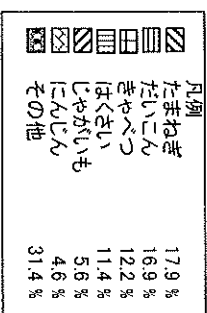 凡例
たまねぎ 17.9 %
だいこん 16.9 %
きゃべつ 12.2 %
はくさい 11.4 %
じゃがいも 5.6 %
にんじん 4.6 %
その他 31.4 %